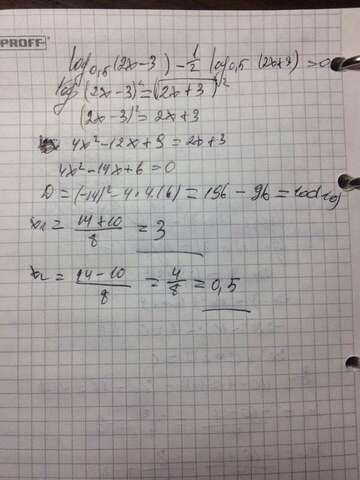 PROFF
log₀,₅(2x-3) - 1/2 log₀,₅(2x+3) = 0
log (2x-3)² = (√2x+3)²
(2x-3)² = 2x+3
4x²-12x+9 = 2x+3
4x²-14x+6=0
D = (-14)²-4·4·(6) = 196-96=100
x₁ = (14+10)/8 = 3
x₂ = (14-10)/8 = 4/8 = 0,5